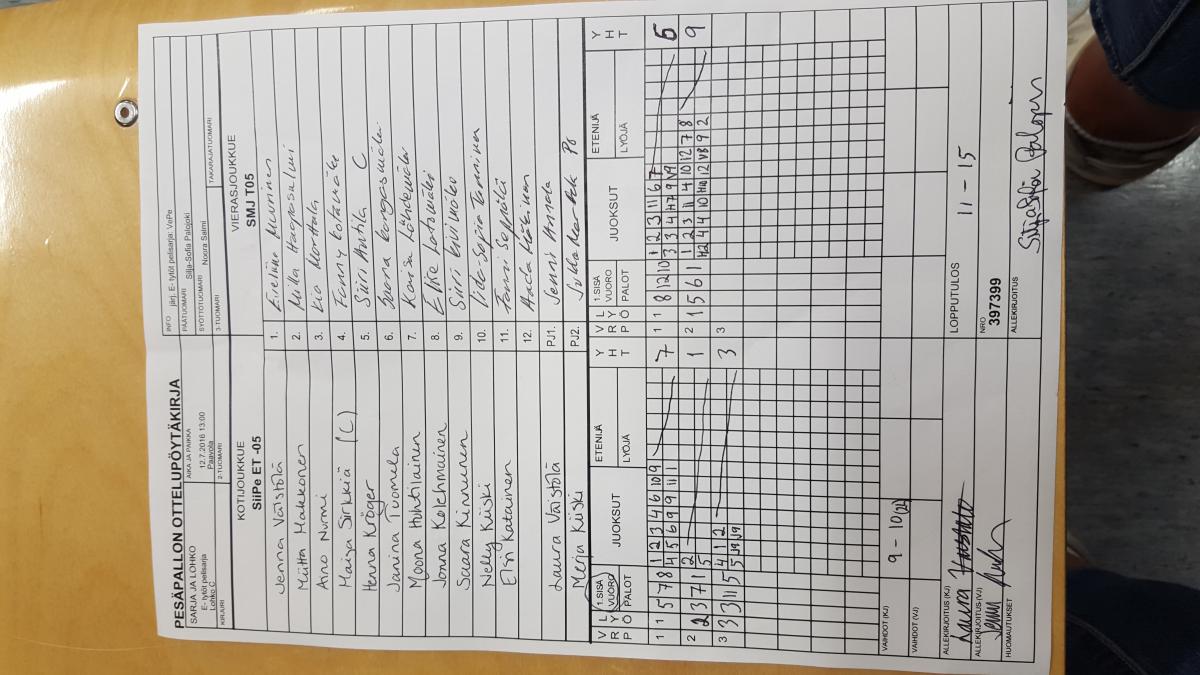 PESÄPALLON OTTELUPÖYTÄKIRJA
SARJA JA LOHKO
E- tytöt pelisarja
Lohko C
AIKA JA PAIKKA
12.7.2016 13:00
Paavola
INFO järj. E- tytöt pelisarja: VePe
PÄÄTUOMARI Silja-Sofia Palojoki
SYÖTTÖTUOMARI Noora Salmi
KIRJURI
2-TUOMARI
3-TUOMARI
TAKARAJATUOMARI
KOTIJOUKKUE
SiiPe ET -05
VIERASJOUKKUE
SMJ T05
Jenna Väistölä
1.
Miitta Makkonen
2. Milla Haapasalmi
Aino Nurmi
3.
Maija Sirkkiä (C)
4. Fanny
Henna Kröger
5. Siiri Anttila C
Janina Tuomela
6.
Moona Huhtilainen
7.
Jonna Kelehmainen
8.
Saara Kinnunen
9. Siiri
Nelly Kiiski
10. Iida-Sofia Tamminen
Elsi Katainen
11. Fanni Seppälä
12.
Laura Väistölä
PJ1. Jenni Annala
Merja Kiiski
PJ2.
V P L R Y Ö 1.SISÄ VUORO PALOT JUOKSUT ETENIJÄ LYÖJÄ Y H T
V P L R Y Ö 1.SISÄ VUORO PALOT JUOKSUT ETENIJÄ LYÖJÄ Y H T
1 1 5 7 8 1 2 3 4 6 10 9 7
4 5 6 9 9 11 11
1 1 8 12 10 1 2 3 11 6 7 6
3 3 4 H7 9 V9
2 2 3 7 1 2 1
5
2 1 5 6 1 1 2 3 11 4 10 12 7 8 9
H2 4 4 10 H10 12 VB 9 2
3 3 3 11 5 4 1 2 3
5 J9 J9
3
VAIHDOT (KJ) 9 - 10 (2A)
VAIHDOT (VJ)
ALLEKIRJOITUS (KJ) Laura
ALLEKIRJOITUS (VJ) Jenni
HUOMAUTUKSET
LOPPUTULOS 11 - 15
NRO
397399
ALLEKIRJOITUS
Silja-Sofia Palojoki